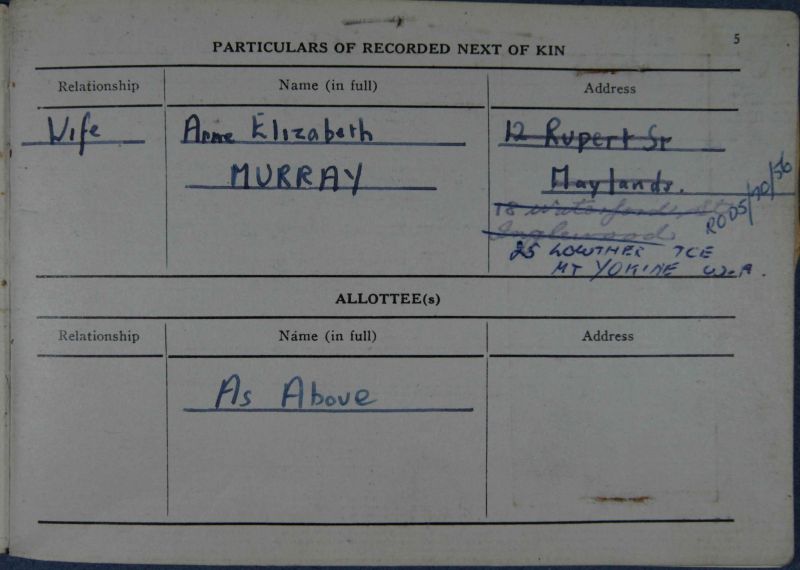 5
PARTICULARS OF RECORDED NEXT OF KIN
Relationship Name (in full) Address
Wife Anne Elizabeth 12 Rupert St
MURRAY Maylands.
18 Waterford St
Inglewood
RO 05/70/56
25 LOWTHER TCE
MT YOKINE W.A.
ALLOTTEE(s)
Relationship Name (in full) Address
As Above